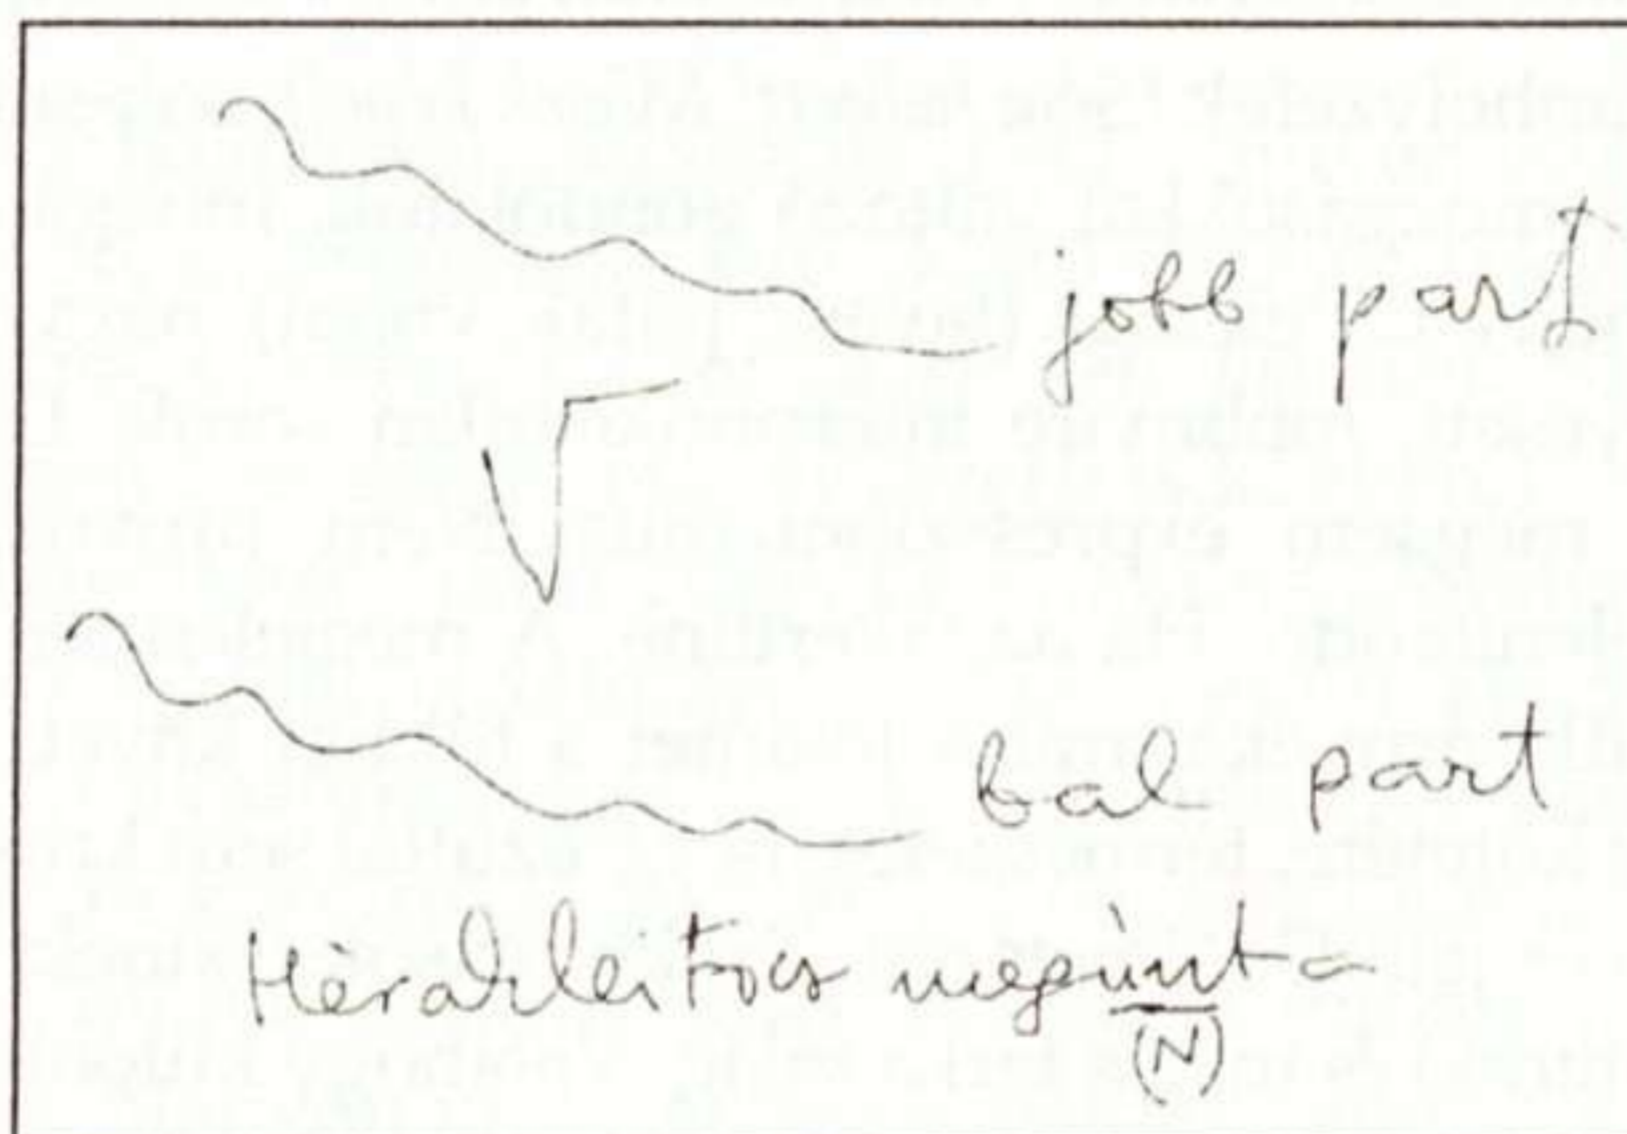 jobb part
bal part
Hérakleitosz megúnta
(N)